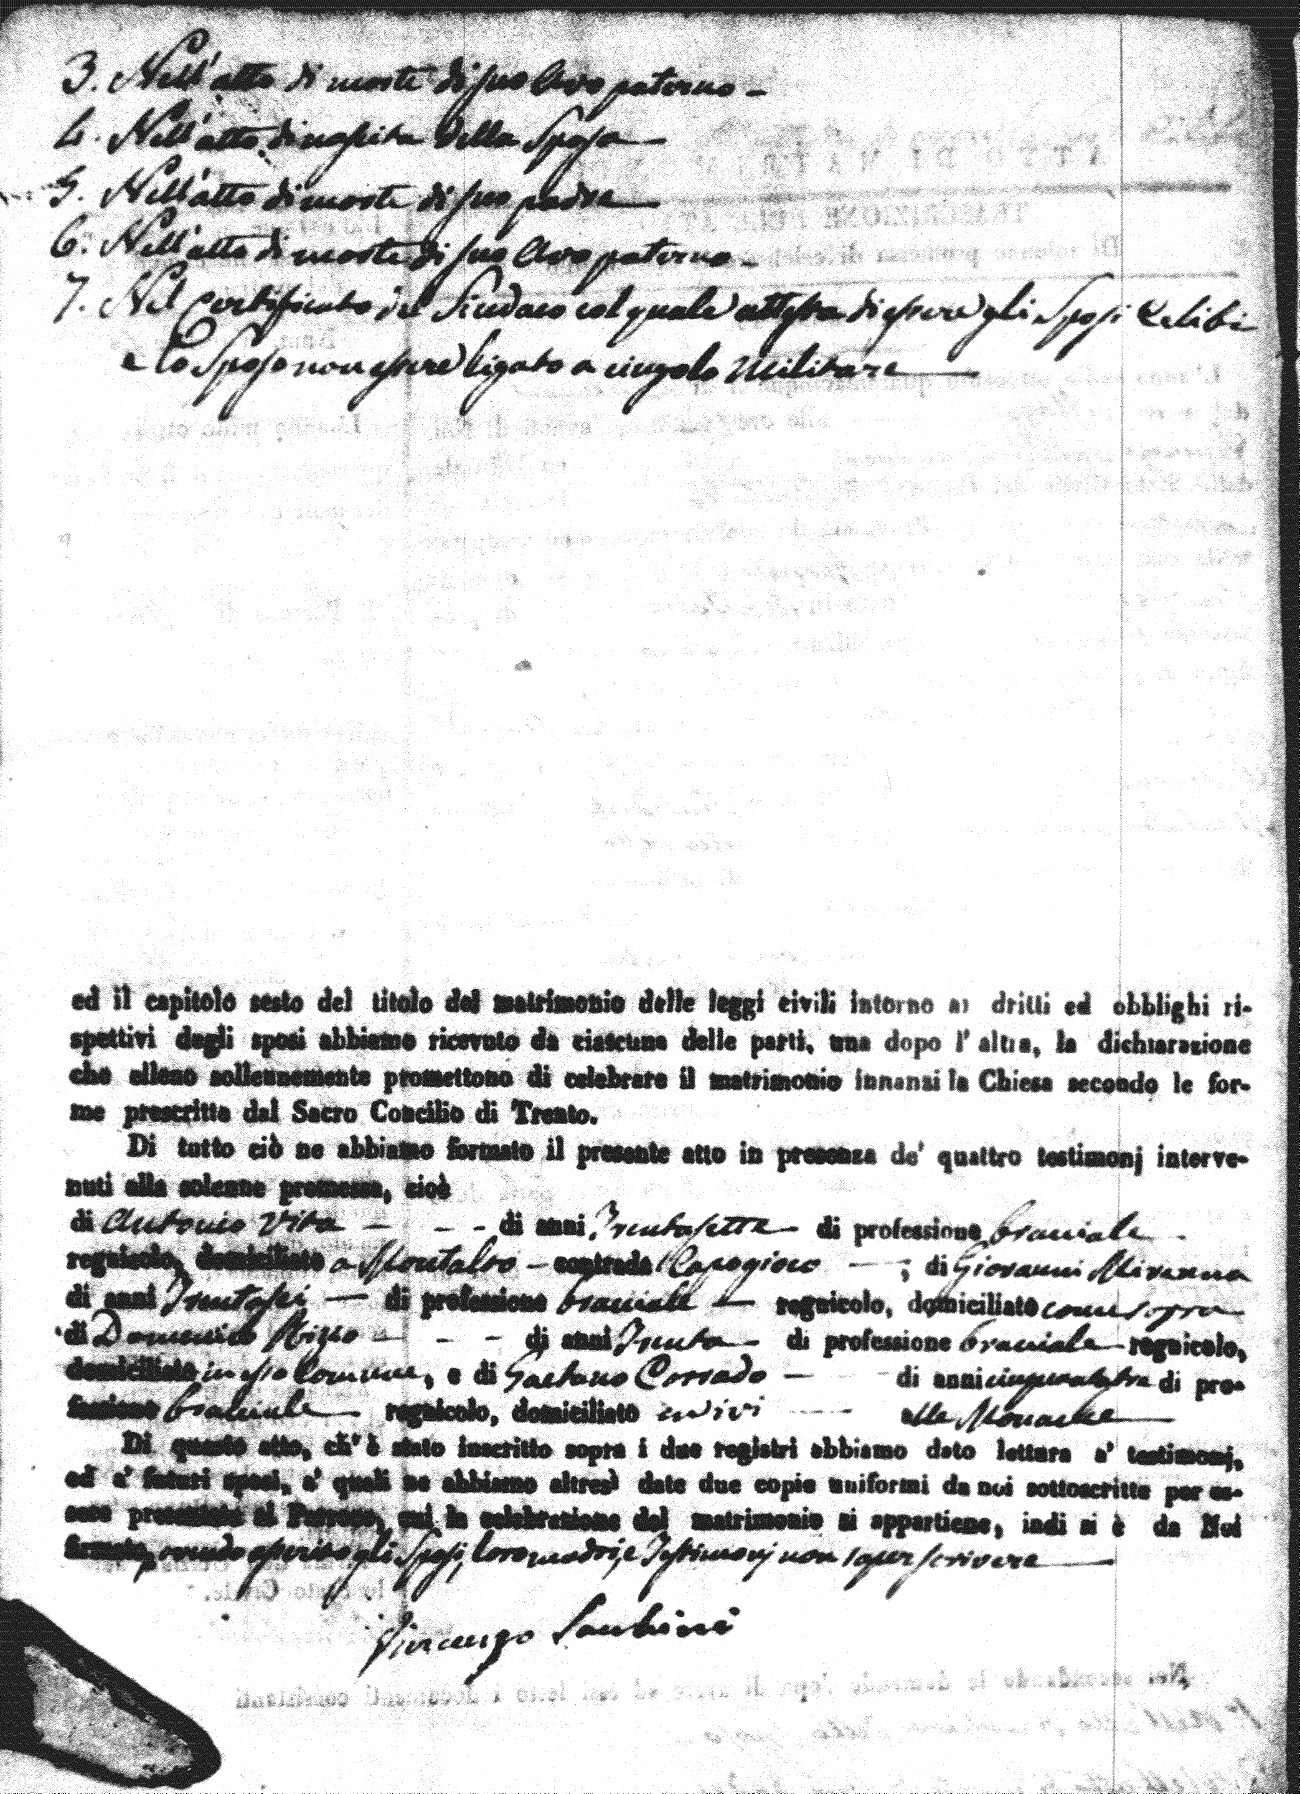 3. Nell'atto di morte di suo Avo paterno -
4. Nell'atto di nascita della Sposa -
5. Nell'atto di morte di suo padre -
6. Nell'atto di morte di suo Avo paterno -
7. Nel certificato del Sindaco col quale attesta di essere gli Sposi Celibi
e lo Sposo non essere ligato a cingolo Militare
ed il capitolo sesto del titolo del matrimonio delle leggi civili intorno ai dritti ed obblighi ri-
spettivi degli sposi abbiamo ricevuto da ciascuna delle parti, una dopo l'altra, la dichiarazione
che elleno sollennemente promettono di celebrare il matrimonio innanzi la Chiesa secondo le for-
me prescritte dal Sacro Concilio di Trento.
Di tutto ciò ne abbiamo formato il presente atto in presenza de' quattro testimonj interve-
nuti alla solenne promessa, cioè
di Antonio Vita - - - di anni Trentasette - di professione bracciale -
regnicolo, domiciliato a Montalto - contrada - , di Giovanni
di anni Trentasei - di professione bracciale - regnicolo, domiciliato come sopra
di Domenico Rizzo - - - di anni Trenta - di professione bracciale - regnicolo,
domiciliato in esso Comune, e di Gaetano Corrado - - - di anni di pro-
fessione bracciale - regnicolo, domiciliato ivi - alle Monache
Di questo atto, ch'è stato inscritto sopra i due registri abbiamo dato lettura a' testimonj,
ed a' futuri sposi, a' quali ne abbiamo altresì date due copie uniformi da noi sottoscritte per es-
sere presentate al Parroco, cui la celebrazione del matrimonio si appartiene, indi si è da Noi
firmato, avendo asserito gli Sposi, loro madri, e Testimonj non saper scrivere
Vincenzo